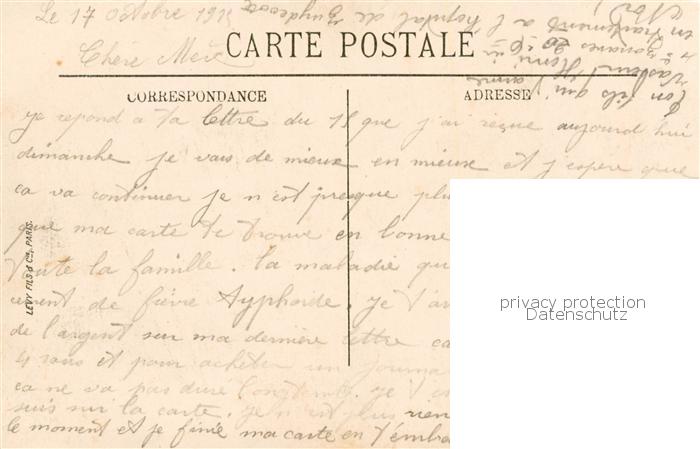 Le 17 octobre 191
Chère Mere
CARTE POSTALE
CORRESPONDANCE
ADRESSE
je repond a ta lettre du 15 que j'ai reçue aujourd hui
dimanche je vais de mieux en mieux et j'espere que
ca va continuer je n est presque plu
que ma carte te trouve en bonne
toute la famille. la maladie qu
de fièvre typhoide. je t'av
de l'argent sur ma dernière lettre ca
4 sous et pour acheter un journa
ca ne va pas dure longtemps. je t'
suis sur la carte. je n est plus rien
le moment et je finie ma carte en t'embra
ton fils qui t'aime
en traitement a l hopital de Zuydcoote
Nord
LEVY FILS & Cie, PARIS.
privacy protection
Datenschutz